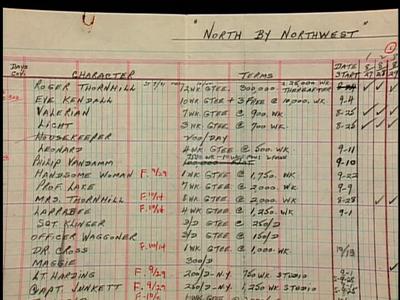 "NORTH BY NORTHWEST"
DAYS CHARACTER TERMS DATE START 8/27 8/28 8/29
ROGER THORNHILL 12 WK GTEE. 300,000 THEREAFTER
EVE KENDALL 10 WK GTEE + 3 FREE @ 10,000. WK 9-4
VALERIAN 7 WK GTEE @ 900. WK 8-25
LICHT 3 WK GTEE @ 700 WK. 8-25
HOUSEKEEPER 400/DAY
LEONARD 4 WK GTEE @ 500. WK 9-11
PHILIP VANDAMM 9-10
HANDSOME WOMAN F. 9/29 1 WK GTEE @ 1,750. WK 9-22
PROF. LAKE 7 WK GTEE @ 2,000. WK 9-9
MRS. THORNHILL F. 2,000. WK 8-28
LARRABEE F. 4 WK GTEE @ 1,250. WK 9-1
SGT. KLINGER 2/D GTEE @ 250/D
OFFICER WAGGONER 2/D GTEE @ 150/D
DR. CROSS F. 10/14 1 WK GTEE @ 1,000. WK 10/13
MAGGIE 300/D
LT. HARDING F. 9/29 200/D-N.Y. 750 WK STUDIO
CAPT. JUNKETT F. 9/29 1,250 WK STUDIO